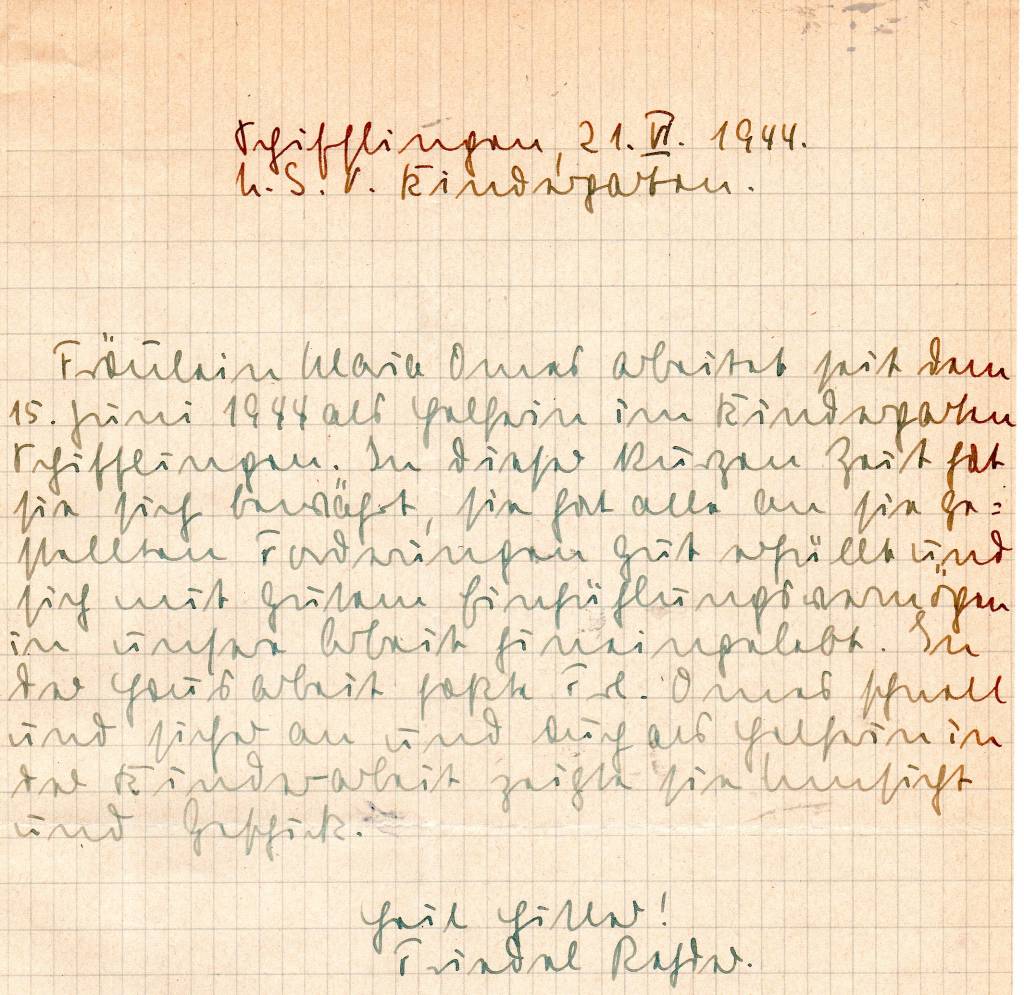 Schifflingen, 21. VI. 1944.
N. S. V. Kindergarten.
Fräulein Maria Omes arbeitet seit dem
15. Juni 1944 als Helferin im Kindergarten
Schifflingen. In dieser kurzen Zeit hat
sie sich bewährt, sie hat alle an sie ge=
stellten Forderungen gut erfüllt und
sich mit gutem Einfühlungsvermögen
in unsere Arbeit hineingelebt. In
der Hausarbeit faßte Frl. Omes schnell
und sicher an und auch als Helferin in
der Kinderarbeit zeigte sie Umsicht
und Geschick.
Heil Hitler!
Friedel Rehder.